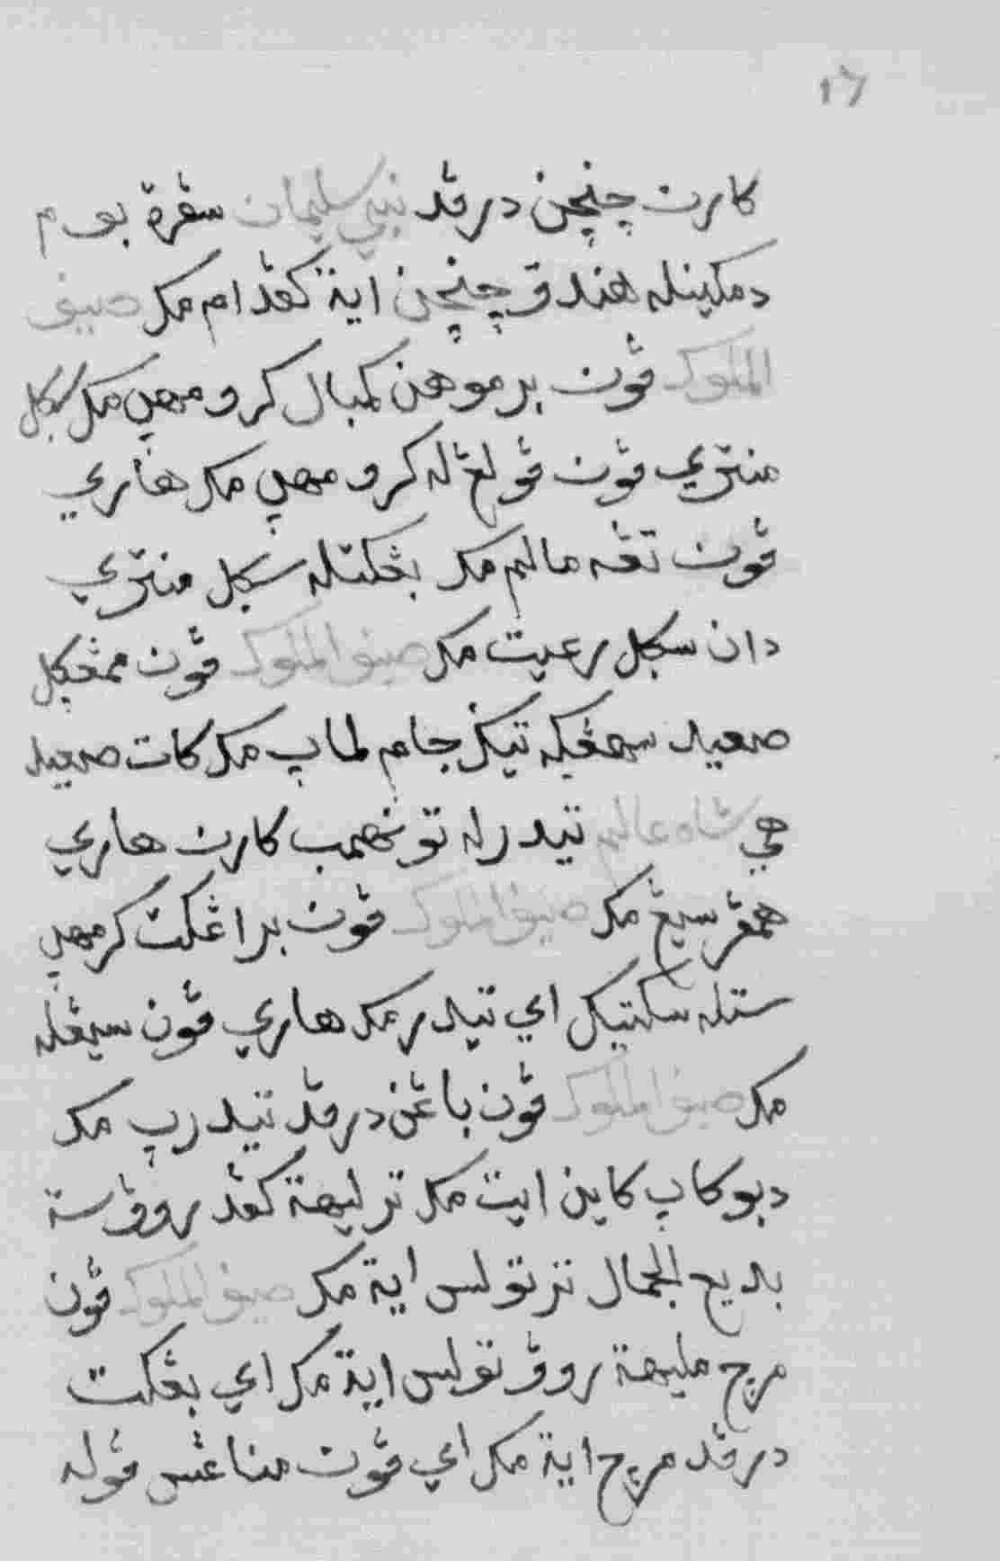 ١٦
كارن چنچن درڤد نبي سليمان سڤرة بوم
دمكينله هندق چنچن اية كڤد ام مك صيف
الملوك ڤون برموهن كمبال كرومهڽ مك سكل
منتري ڤون ڤولڠله كرومهڽ مك هاري
ڤون تڠه مالم مك بڠكتله سكل منتري
دان سكل رعيت مك صيف الملوك ڤون ممڠكل
صعيد سمڠكه تيݢ جام لماڽ مك كات صعيد
هي شاه عالم تيدرله تونهمب كارن هاري
همڤر سيڠ مك صيف الملوك ڤون براڠكت كرمهڽ
ستله سكتيك اي تيدر مك هاري ڤون سيڠله
مك صيف الملوك ڤون باڠن درڤد تيدرڽ مك
دبوكاڽ كاين ايت مك ترليهة كڤد روڤ ستة
بديع الجمال ترتولس اية مك صيف الملوك ڤون
مليهة روڤ تولس اية مك اي بڠكت
درڤد اية مك اي ڤون مناڠس ڤوله